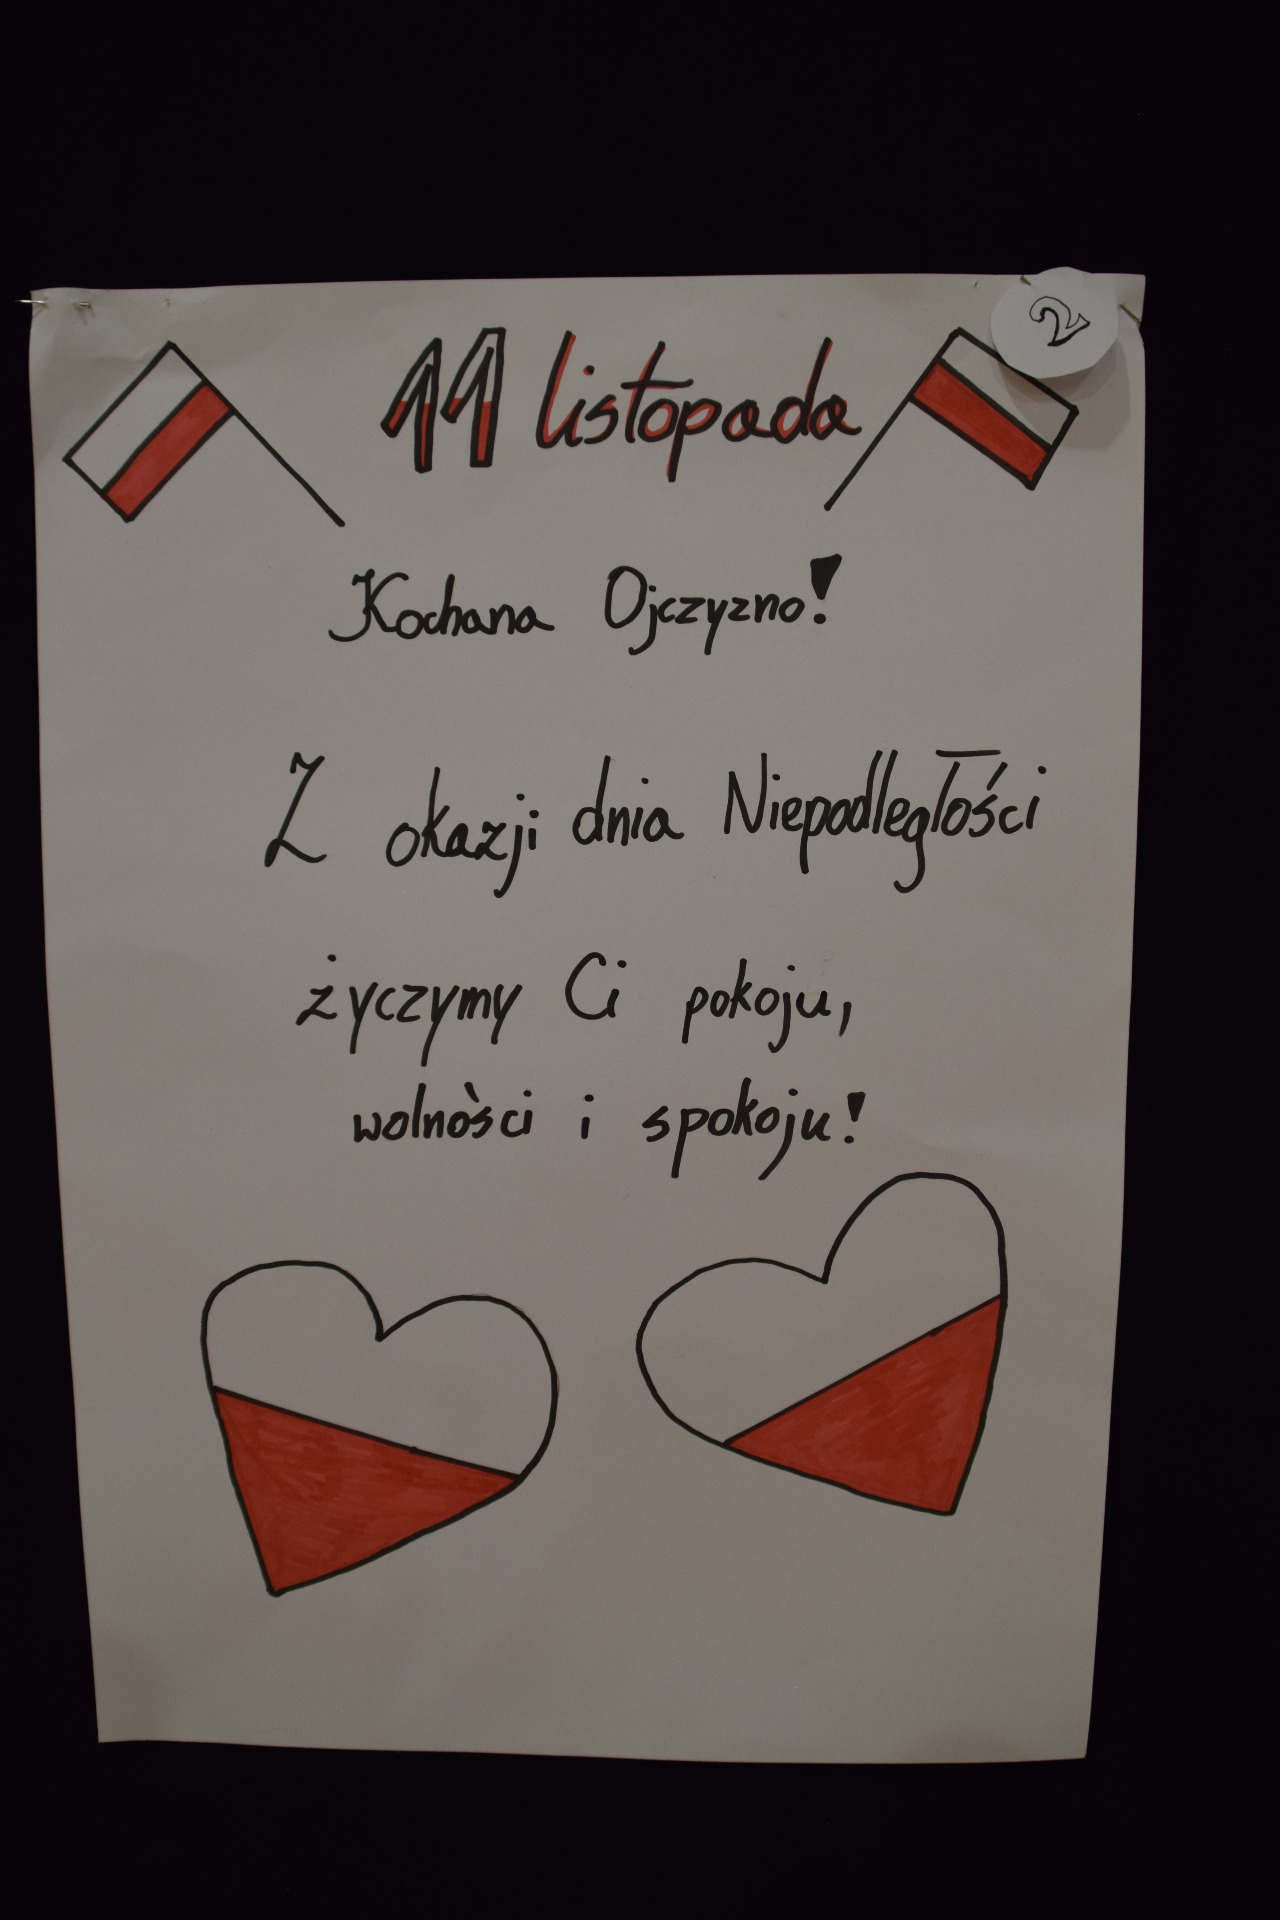 2
11 listopada
Kochana Ojczyzno!
Z okazji dnia Niepodległości
życzymy Ci pokoju,
wolności i spokoju!